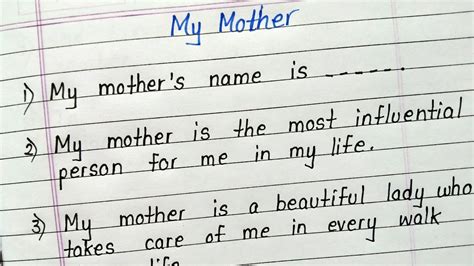 My Mother
1) My mother's name is ------.
2) My mother is the most influential
person for me in my life.
3) My mother is a beautiful lady who
takes care of me in every walk
life